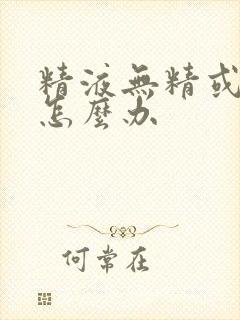 精液無精或
怎麼办
何常在